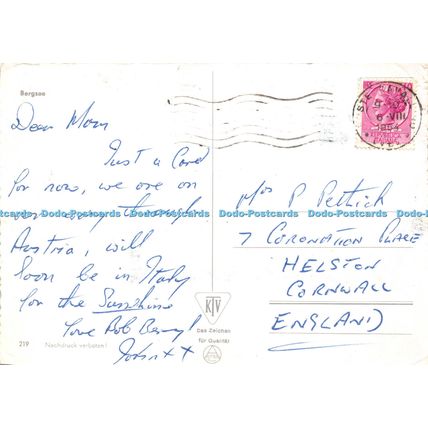 Bergsee
Dear Mom
Just a Card
for now, we are on
our way through
Austria, will
soon be in Italy
for the Sunshine
Love Rob Beryl
John x x
219
Nachdruck verboten!
KJV
Das Zeichen
für Qualität
6 VIII
Mrs P Pettick
7 CORONATION PLACE
HELSTON
CORNWALL
ENGLAND
Dodo-Postcards Dodo-Postcards Dodo-Postcards Dodo-Postcards Dodo-Postcards
Dodo-Postcards Dodo-Postcards Dodo-Postcards Dodo-Postcards Dodo-Postcards